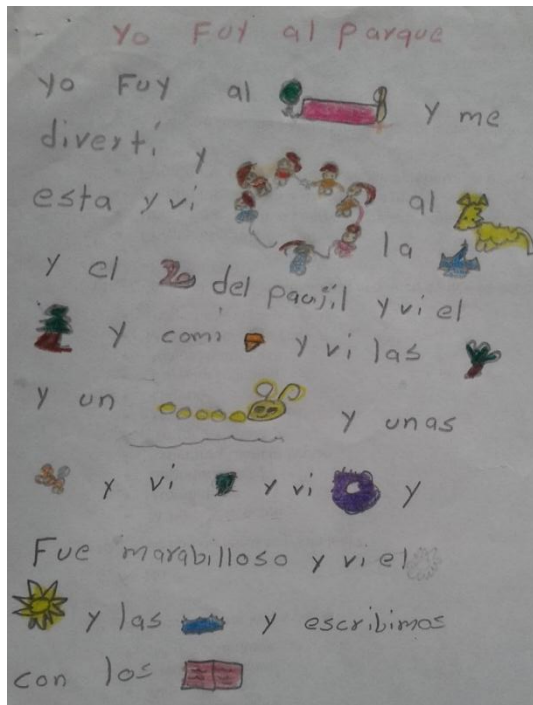 Yo Fuy al parque
Yo Fuy al y me
diverti y
esta y vi al
la
y el del paujil y vi el
y comi y vi las
y un y unas
y vi y vi y
Fue marabilloso y vi el
y las y escribimos
con los